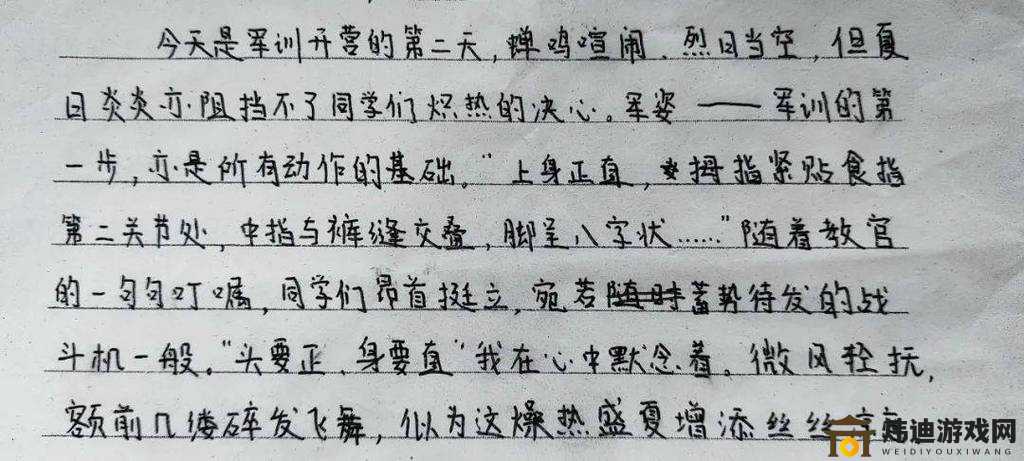 今天是军训开营的第二天,蝉鸣喧闹、烈日当空,但夏
日炎炎亦阻挡不了同学们炽热的决心。军姿——军训的第
一步,亦是所有动作的基础。“上身正直,拇指紧贴食指
第二关节处,中指与裤缝交叠,脚呈八字状……”随着教官
的一句句叮嘱,同学们昂首挺立,宛若随时蓄势待发的战
斗机一般。“头要正、身要直”我在心中默念着。微风轻抚,
额前几缕碎发飞舞,似为这燥热盛夏增添丝丝
炜迪游戏网
WEIDIYOUXIWANG